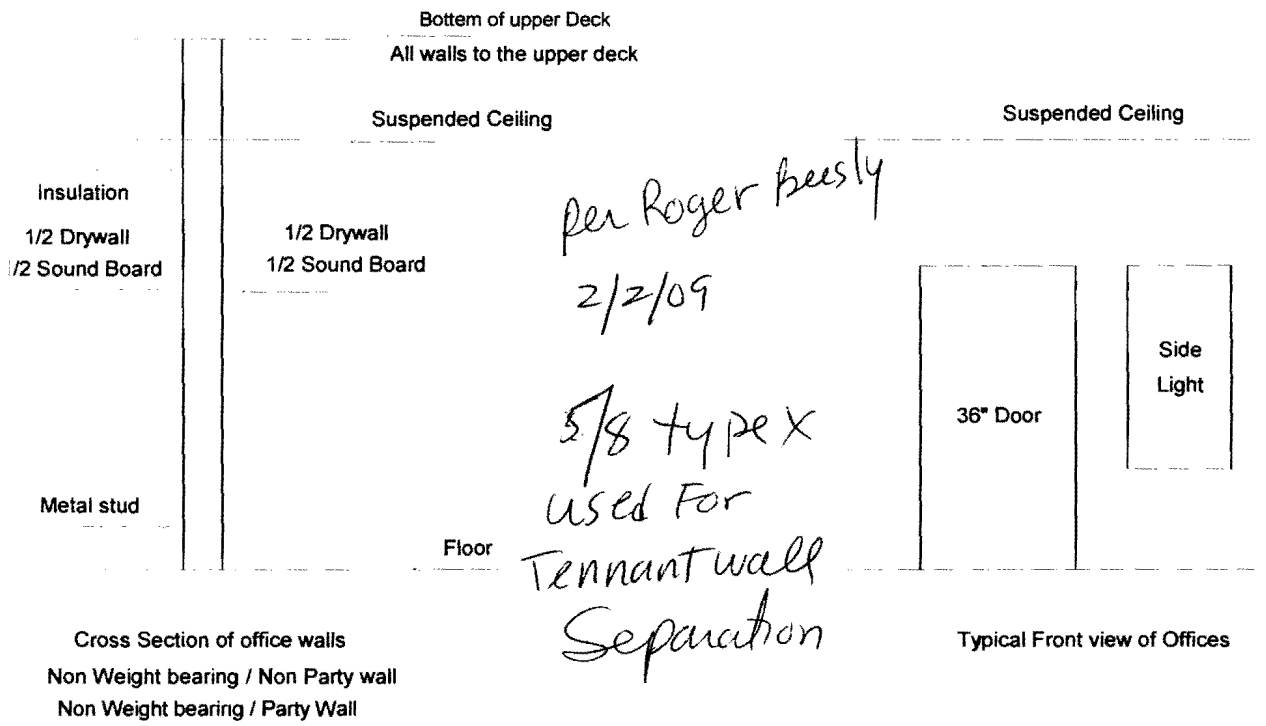 Bottem of upper Deck
All walls to the upper deck
Suspended Ceiling
Suspended Ceiling
Insulation
1/2 Drywall
1/2 Sound Board
1/2 Drywall
1/2 Sound Board
per Roger Beesly
2/2/09
5/8 type X
used For
Tennant wall
Separation
Side
Light
36" Door
Metal stud
Floor
Cross Section of office walls
Non Weight bearing / Non Party wall
Non Weight bearing / Party Wall
Typical Front view of Offices